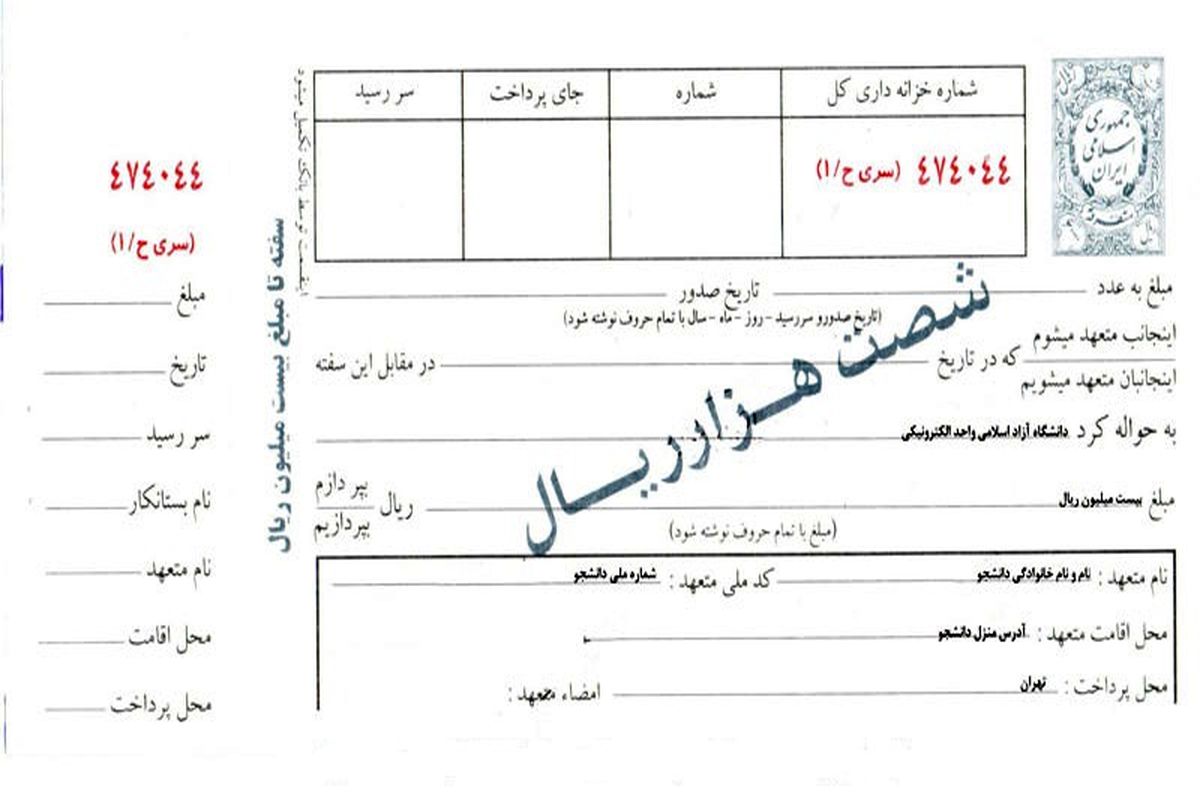 جمهوری
اسلامی
ایران
متفرقه
ریال
شماره خزانه داری کل
شماره
جای پرداخت
سر رسید
٤٧٤٠٤٤ (سری ح/۱)
اینقسمت توسط بانک تکمیل میشود
سفته تا مبلغ بیست میلیون ریال
شصت هزار ریال
مبلغ به عدد تاریخ صدور
(تاریخ صدورو سررسید - روز - ماه - سال با تمام حروف نوشته شود)
اینجانب متعهد میشوم
اینجانبان متعهد میشویم
که در تاریخ در مقابل این سفته
به حواله کرد دانشگاه آزاد اسلامی واحد الکترونیکی
مبلغ بیست میلیون ریال ریال
بپر دازم
بپردازیم
(مبلغ با تمام حروف نوشته شود)
نام متعهد : نام و نام خانوادگی دانشجو کد ملی متعهد : شماره ملی دانشجو
محل اقامت متعهد : آدرس منزل دانشجو
محل پرداخت : تهران امضاء متعهد :
٤٧٤٠٤٤
(سری ح/۱)
مبلغ
تاریخ
سر رسید
نام بستانکار
نام متعهد
محل اقامت
محل پرداخت